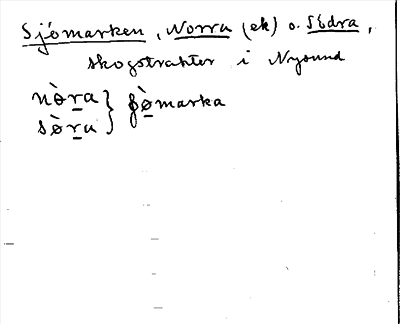 Sjömarken, Norra (ek) o. Södra,
skogstrakter i Nysund
nò̱ra } ʃø̱̀marka
sø̀ra